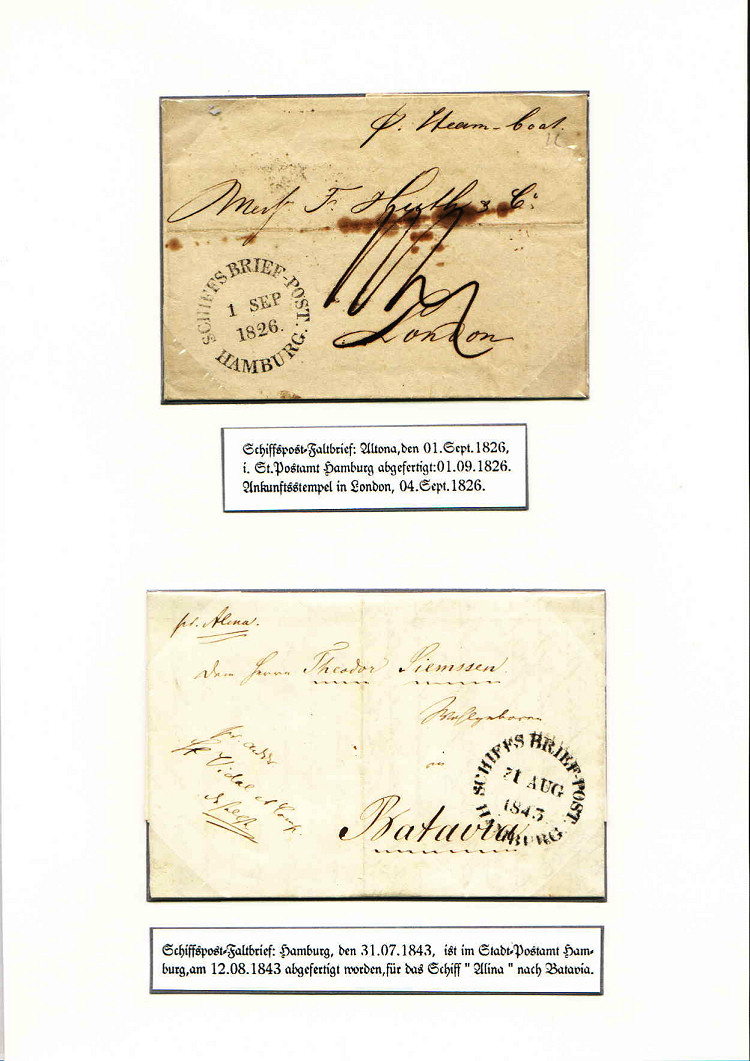 p. Steam-boat.
Mess. F. Huth & Co.
SCHIFFS BRIEF-POST.
1 SEP
1826.
HAMBURG.
London
Schiffspost-Faltbrief: Altona,den 01.Sept.1826,
i. St.Postamt Hamburg abgefertigt:01.09.1826.
Ankunftsstempel in London, 04.Sept.1826.
pr. Alina.
dem Herrn Theodor Siemssen
Wohlgeboren
in
Vidal et Comp.
SCHIFFS BRIEF-POST
AUG
1843.
HAMBURG.
Batavia
Schiffspost-Faltbrief: Hamburg, den 31.07.1843, ist im Stadt-Postamt Ham-
burg,am 12.08.1843 abgefertigt worden,für das Schiff " Alina " nach Batavia.